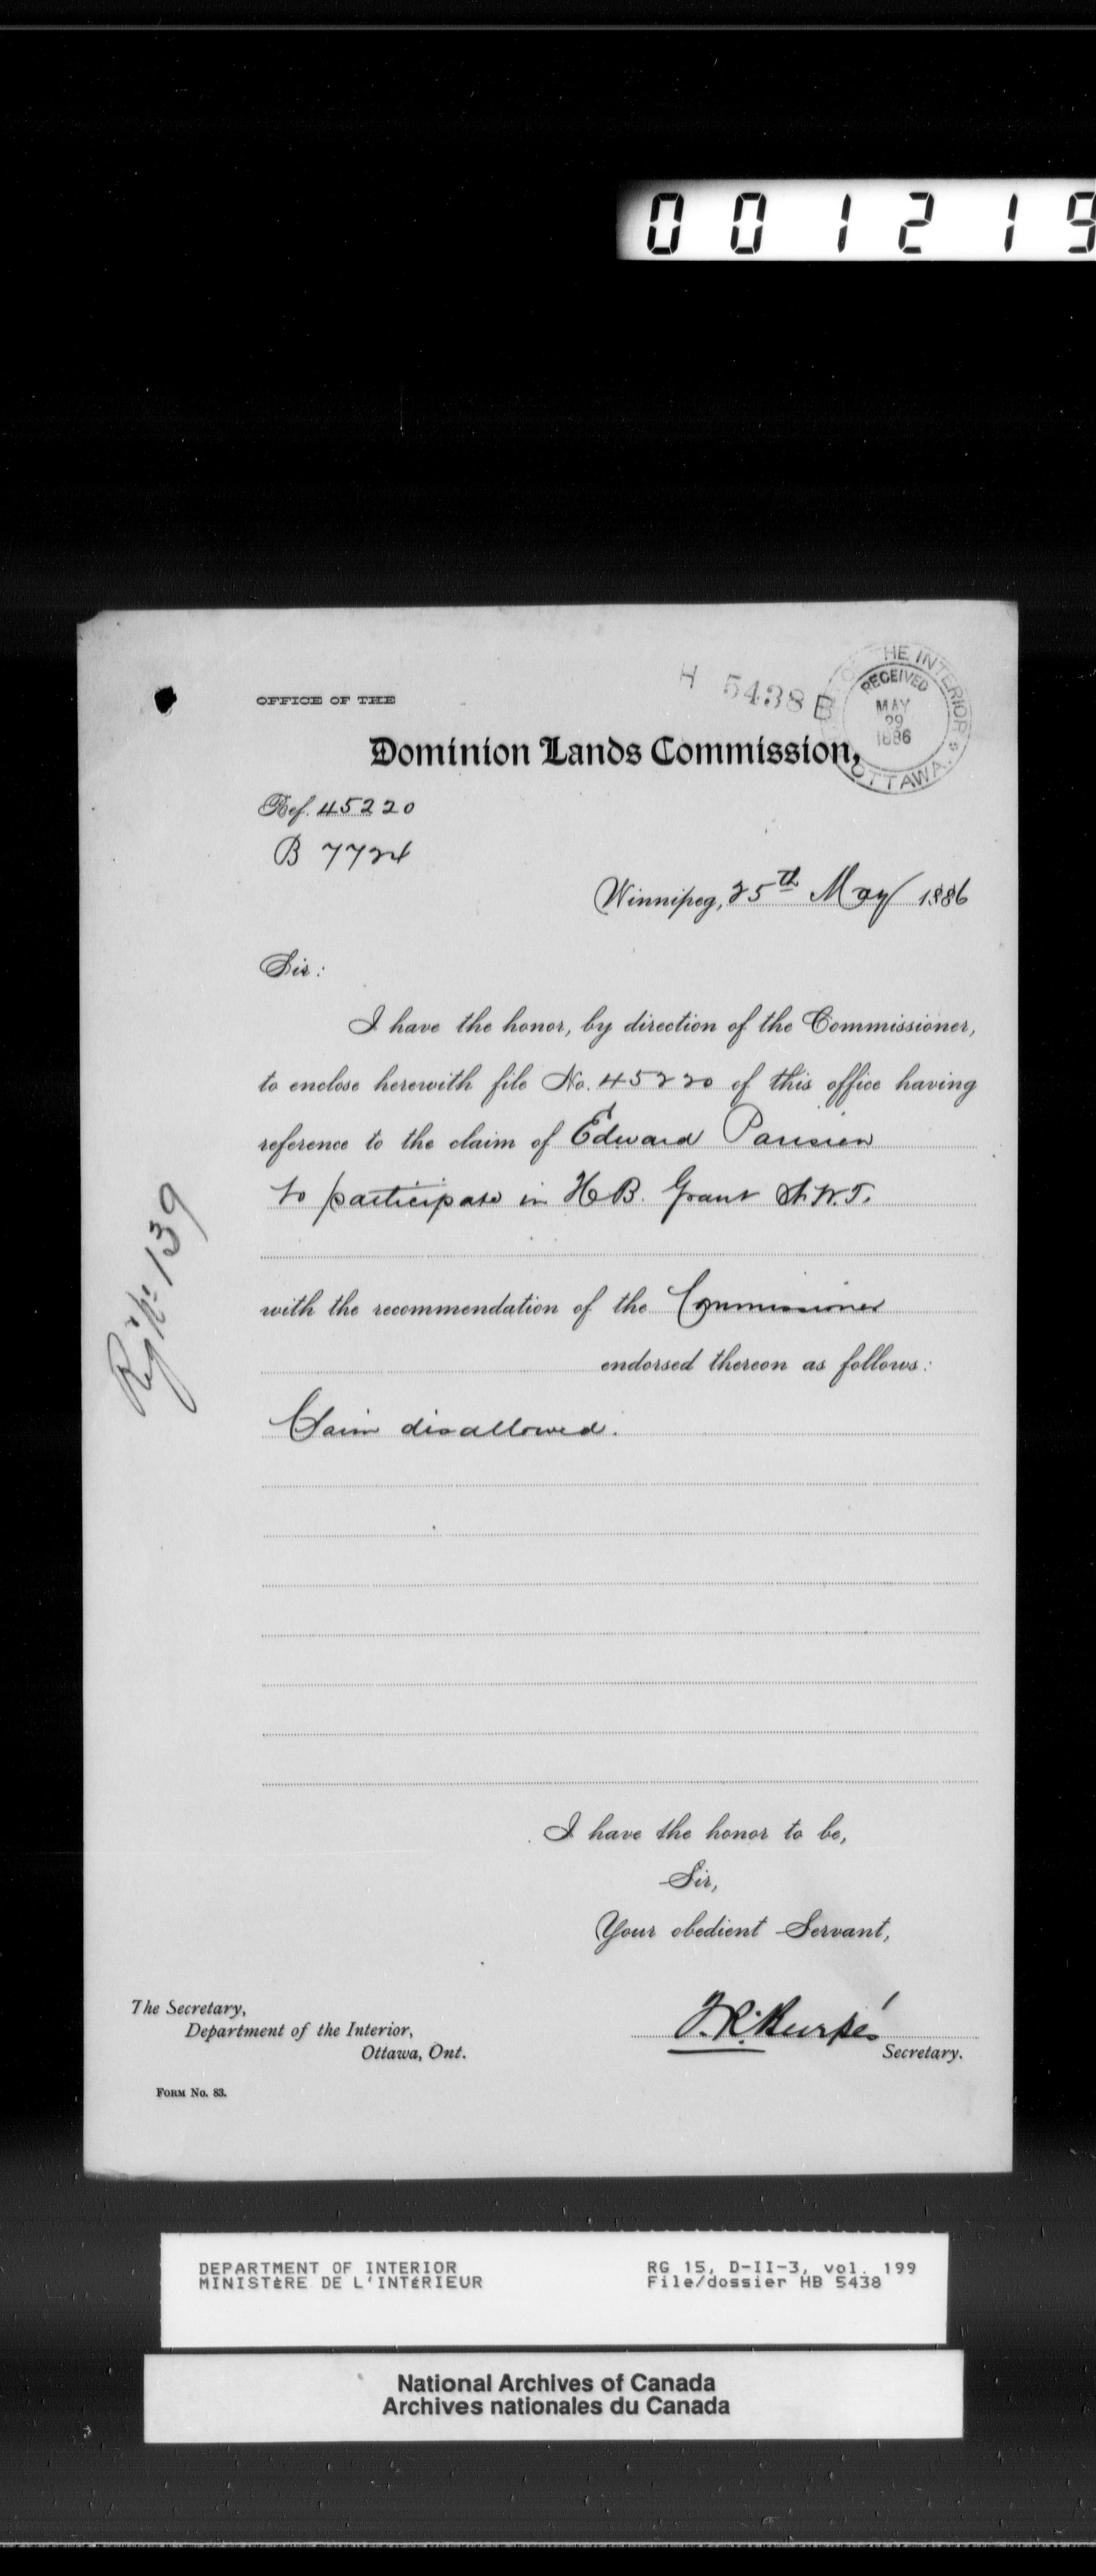 0 0 1 2 1 9
H 5438 B
THE INTERIOR
RECEIVED
MAY
29
1886
OTTAWA.
OFFICE OF THE
Dominion Lands Commission,
Ref. 45220
B 7724
Winnipeg, 25th May 1886
Sir:
I have the honor, by direction of the Commissioner,
to enclose herewith file No. 45220 of this office having
reference to the claim of Edward Parisien
to participate in H B. Grant N.W.T.
with the recommendation of the Commissioner
endorsed thereon as follows:
Claim disallowed.
139
I have the honor to be,
Sir,
Your obedient Servant,
The Secretary,
Department of the Interior,
Ottawa, Ont.
Secretary.
FORM No. 83.
DEPARTMENT OF INTERIOR
MINISTÈRE DE L'INTÉRIEUR
RG 15, D-II-3, vol. 199
File/dossier HB 5438
National Archives of Canada
Archives nationales du Canada